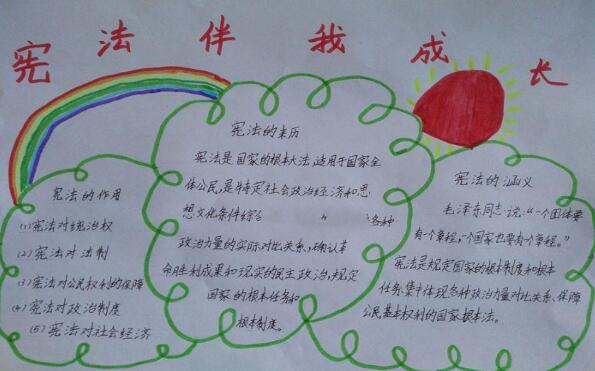 宪法伴我成长
宪法的作用
(1)宪法对统治权
(2)宪法对法制
(3)宪法对公民权利的保障
(4)宪法对政治制度
(5)宪法对社会经济
宪法的来历
宪法是国家的根本大法,适用于国家全
体公民,是特定社会政治经济和思
想文化条件综合 各种
政治力量的实际对比关系,确认革
命胜利成果和现实的民主政治,规定
国家的根本任务和
根本制度。
宪法的涵义
毛泽东同志说:“一个团体要
有一个章程,一个国家也要有个章程。”
宪法是规定国家的根本制度和根本
任务.集中体现各种政治力量对比关系、保障
公民基本权利的国家根本法。